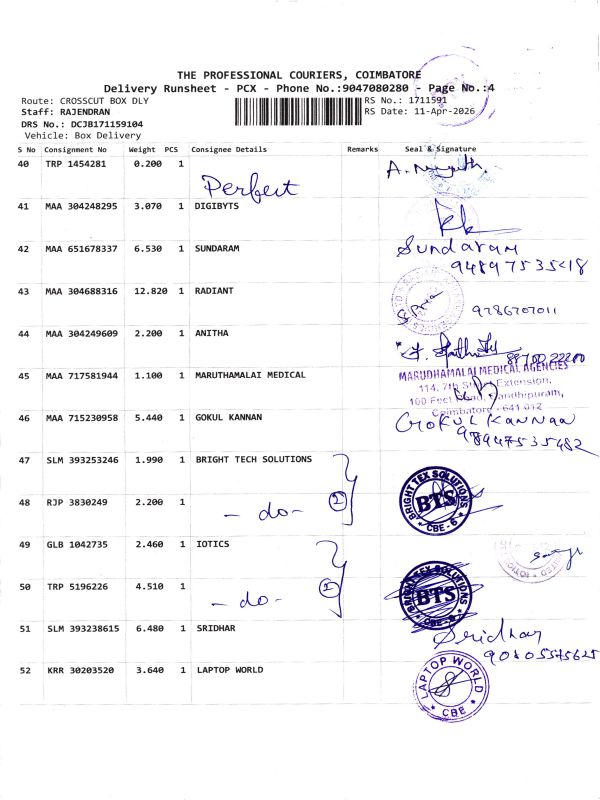 THE PROFESSIONAL COURIERS, COIMBATORE
Delivery Runsheet - PCX - Phone No.:9047080280 - Page No.:4
Route: CROSSCUT BOX DLY
RS No.: 1711591
Staff: RAJENDRAN
RS Date: 11-Apr-2026
DRS No.: DCJB171159104
Vehicle: Box Delivery
S No Consignment No Weight PCS Consignee Details Remarks Seal & Signature
40 TRP 1454281 0.200 1
Perfect
41 MAA 304248295 3.070 1 DIGIBYTS
42 MAA 651678337 6.530 1 SUNDARAM Sundaram
43 MAA 304688316 12.820 1 RADIANT
9786707011
44 MAA 304249609 2.200 1 ANITHA
45 MAA 717581944 1.100 1 MARUTHAMALAI MEDICAL MARUDHAMALAI MEDICAL AGENCIES
114, 7th Extension,
100 Feet Gandhipuram,
Coimbatore - 641 012
46 MAA 715230958 5.440 1 GOKUL KANNAN GOKUL KANNAN
47 SLM 393253246 1.990 1 BRIGHT TECH SOLUTIONS
BRIGHT TEX SOLUTIONS
BTS
CBE-6
48 RJP 3830249 2.200 1
- do - 2
49 GLB 1042735 2.460 1 IOTICS
50 TRP 5196226 4.510 1
- do -
BRIGHT TEX SOLUTIONS
BTS
51 SLM 393238615 6.480 1 SRIDHAR Sridhar
52 KRR 30203520 3.640 1 LAPTOP WORLD
LAPTOP WORLD
CBE